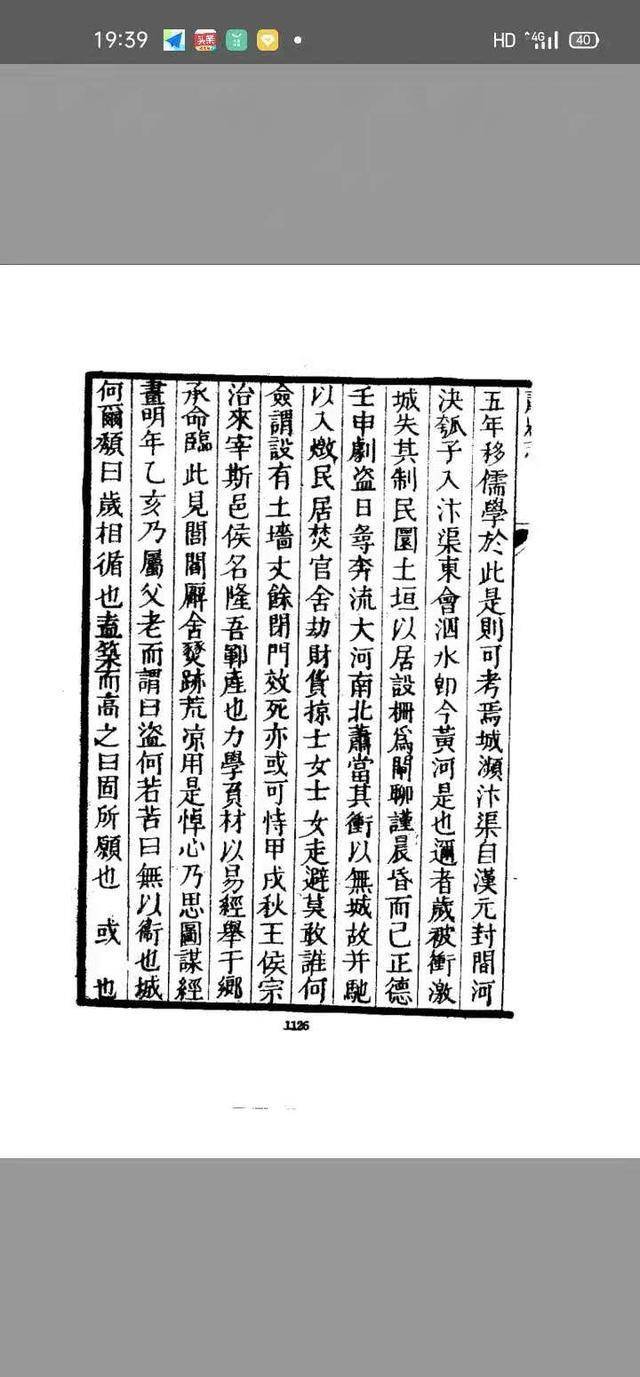 19:39 头条 HD 4G 40
五年移儒學於此是則可考焉城瀕汴渠自漢元封間河
決瓠子入汴渠東會泗水卽今黃河是也邇者歲被衝激
城失其制民圜土垣以居設柵為閘聊謹晨昏而已正德
壬申劇盜日尋奔流大河南北蕭當其衝以無城故并馳
以入燬民居焚官舍劫財貨掠士女士女走避莫敢誰何
僉謂設有土墻丈餘閉門效死亦或可恃甲戌秋王侯宗
治來宰斯邑侯名隆吾鄆產也力學負材以易經舉于鄉
承命臨此見閭閻廨舍燹跡荒凉用是悼心乃思圖謀經
畫明年乙亥乃屬父老而謂曰盜何若苦曰無以衞也城
何爾頺曰歲相循也盍築而高之曰固所願也 或 也
1126